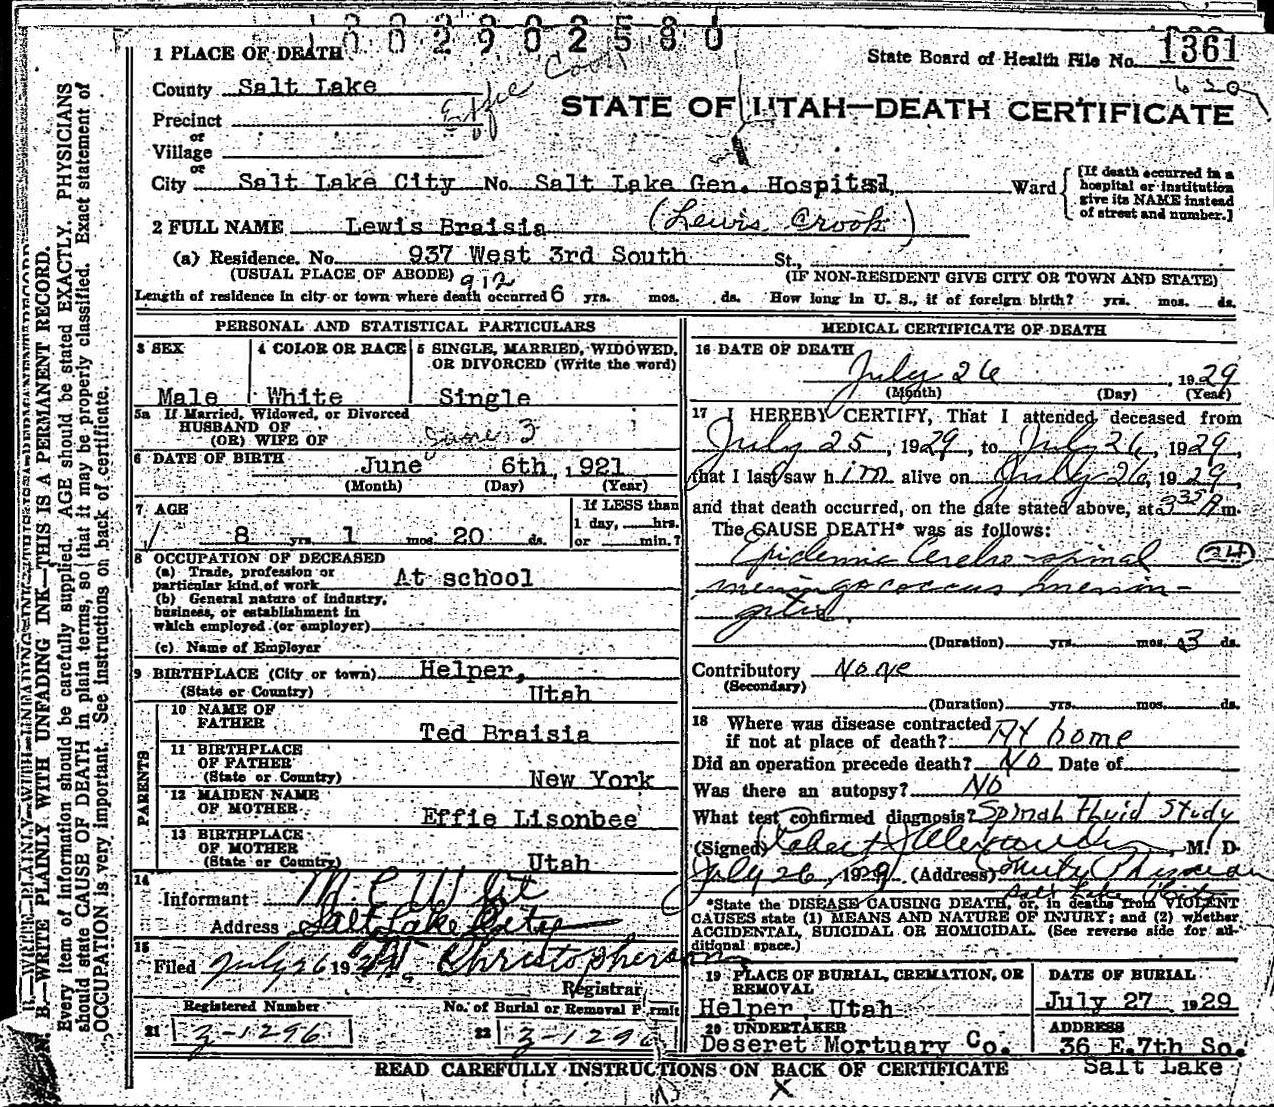 1002902580
1 PLACE OF DEATH
State Board of Health File No. 1361
County Salt Lake
Effie Cook
Precinct
STATE OF UTAH—DEATH CERTIFICATE
or
Village
or
City Salt Lake City No. Salt Lake Gen. Hospital, Ward
[If death occurred in a hospital or institution give its NAME instead of street and number.]
2 FULL NAME Lewis Braisia (Lewis Crook)
(a) Residence. No. 937 West 3rd South St.,
(USUAL PLACE OF ABODE) 912 (IF NON-RESIDENT GIVE CITY OR TOWN AND STATE)
Length of residence in city or town where death occurred 6 yrs. mos. ds. How long in U. S., if of foreign birth? yrs. mos. ds.
PERSONAL AND STATISTICAL PARTICULARS
3 SEX
4 COLOR OR RACE
5 SINGLE, MARRIED, WIDOWED, OR DIVORCED (Write the word)
Male White Single
5a If Married, Widowed, or Divorced
HUSBAND OF
(OR) WIFE OF
June 3
6 DATE OF BIRTH June 6th, 1921
(Month) (Day) (Year)
7 AGE
If LESS than
1 day, hrs.
or min.?
8 yrs. 1 mos. 20 ds.
8 OCCUPATION OF DECEASED
(a) Trade, profession or
particular kind of work At school
(b) General nature of industry,
business, or establishment in
which employed (or employer)
(c) Name of Employer
9 BIRTHPLACE (City or town) Helper,
(State or Country) Utah
PARENTS
10 NAME OF
FATHER Ted Braisia
11 BIRTHPLACE
OF FATHER
(State or Country) New York
12 MAIDEN NAME
OF MOTHER Effie Lisonbee
13 BIRTHPLACE
OF MOTHER
(State or Country) Utah
14
Informant
Address Salt Lake City
15
Filed July 26 1929 Christopherson
Registrar
Registered Number
No. of Burial or Removal Permit
21 3-1296
22 3-1296
MEDICAL CERTIFICATE OF DEATH
16 DATE OF DEATH
July 26, 1929
(Month) (Day) (Year)
17 I HEREBY CERTIFY, That I attended deceased from
July 25, 1929, to July 26, 1929,
that I last saw him alive on July 26, 1929
and that death occurred, on the date stated above, at 935 A m.
The CAUSE DEATH* was as follows:
Epidemic Cerebro-spinal (24)
meningococcus menin-
gitis
(Duration) yrs. mos. 3 ds.
Contributory None
(Secondary)
(Duration) yrs. mos. ds.
18 Where was disease contracted
if not at place of death? At home
Did an operation precede death? No Date of
Was there an autopsy? No
What test confirmed diagnosis? Spinal fluid study
(Signed) Robert Alexander, M. D.
July 26, 1929 (Address) County Physician
Salt Lake City
*State the DISEASE CAUSING DEATH, or, in deaths from VIOLENT
CAUSES state (1) MEANS AND NATURE OF INJURY; and (2) whether
ACCIDENTAL, SUICIDAL OR HOMICIDAL. (See reverse side for ad-
ditional space.)
19 PLACE OF BURIAL, CREMATION, OR REMOVAL
DATE OF BURIAL
Helper, Utah July 27 1929
20 UNDERTAKER
ADDRESS
Deseret Mortuary Co. 36 E. 7th So.
Salt Lake
READ CAREFULLY INSTRUCTIONS ON BACK OF CERTIFICATE
X
N. B.—WRITE PLAINLY WITH UNFADING INK—THIS IS A PERMANENT RECORD.
Every item of information should be carefully supplied. AGE should be stated EXACTLY. PHYSICIANS
should state CAUSE OF DEATH in plain terms, so that it may be properly classified. Exact statement of
OCCUPATION is very important. See instructions on back of certificate.